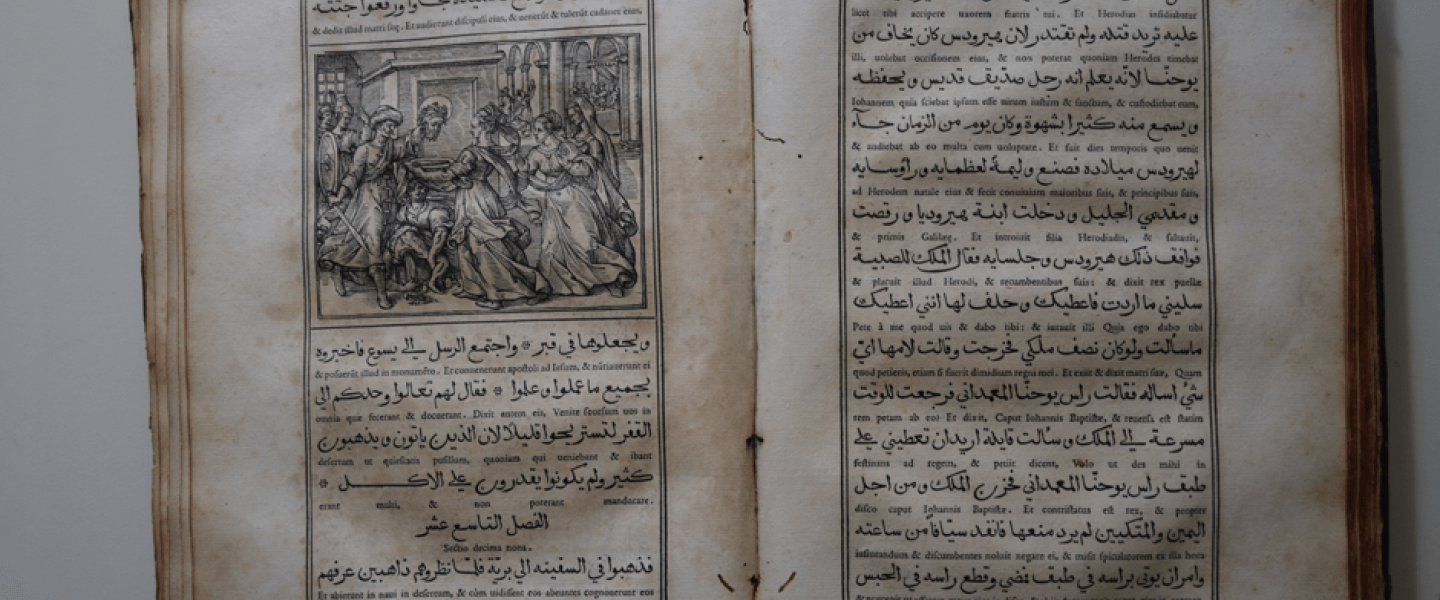 licet tibi accipere uxorem fratris tui. Et Herodias insidiabatur
عليه تريد قتله ولم تقتدر لان هيرودس كان يخاف من
illi, uolebat occisionem eius, & non poterat quoniam Herodes timebat
يوحنّا لانّه يعلم انه رجل صدّيق قديس ويحفظه
Iohannem quia sciebat ipsum esse uirum iustum & sanctum, & custodiebat eum,
ويسمع منه كثيرا بشهوة وكان يوم من الزمان جآء
& audiebat ab eo multa cum uoluptate. Et fuit dies temporis quo uenit
لهيرودس ميلاده فصنع وليمة لعظمايه ورأوسايه
ad Herodem natale eius & fecit conuiuium maioribus suis, & principibus suis,
ومقدمي الجليل ودخلت ابنة هيروديا ورقصت
& primis Galileę. Et introiuit filia Herodiadis, & saltauit,
فوافق ذلك هيرودس وجلسايه فقال الملك للصبية
& placuit illud Herodi, & recumbentibus suis: & dixit rex puellæ
سليني ما اردت فاعطيك وحلف لها انني اعطيك
Pete à me quod uis & dabo tibi: & iurauit illi Quia ego dabo tibi
ماسألت ولوكان نصف ملكي فخرجت وقالت لامها ايّ
quod petieris, etiam si fuerit dimidium regni mei. Et exiit & dixit matri suæ, Quam
شئ اساله فقالت راس يوحنّا المعمداني فرجعت للوقت
rem petam ab eo? Et dixit, Caput Iohannis Baptistæ, & reuersa est statim
مسرعة الي الملك وسألت قايلة اريدان تعطيني علي
festinans ad regem, & petiit dicens, Volo ut des mihi in
طبق راس يوحنّا المعمداني فحزن الملك ومن اجل
disco caput Iohannis Baptistæ. Et contristatus est rex, & propter
اليمين والمتّكيين لم يرد منعها فانفد سيّافاً من ساعته
iusiurandum & discumbentes noluit negare ei, & misit spiculatorem ex illa hora
وامران يوتي براسه في طبق فمضي وقطع راسه في الحبس
& dedit illud matri suę. Et audierunt discipuli eius, & uenerũt & tulerũt cadauer eius,
ويجعلوها في قبر * واجتمع الرسل الي يسوع فاخبروه
& posuerũt illud in monumẽto. Et conuenerunt apostoli ad Iesum, & nũtiauerunt ei
بجميع ما عملوا وعلموا * فقال لهم تعالوا وحدكم الي
omnia quæ fecerant & docuerant. Dixit autem eis, Venite seorsum uos in
القفر لتستريحوا قليلا لان الذين ياتون ويذهبون
desertum ut quiescatis pusillum, quoniam qui ueniebant & ibant
كثير ولم يكونوا يقدرون علي الاكل *
erant multi, & non poterant manducare.
الفصل التاسع عشر
Sectio decima nona.
فذهبوا في السفينه الي برّيّة فلمّا نظروهم ذاهبين عرفهم
Et abierunt in naui in desertum, & cùm uidissent eos abeuntes cognouerunt eos